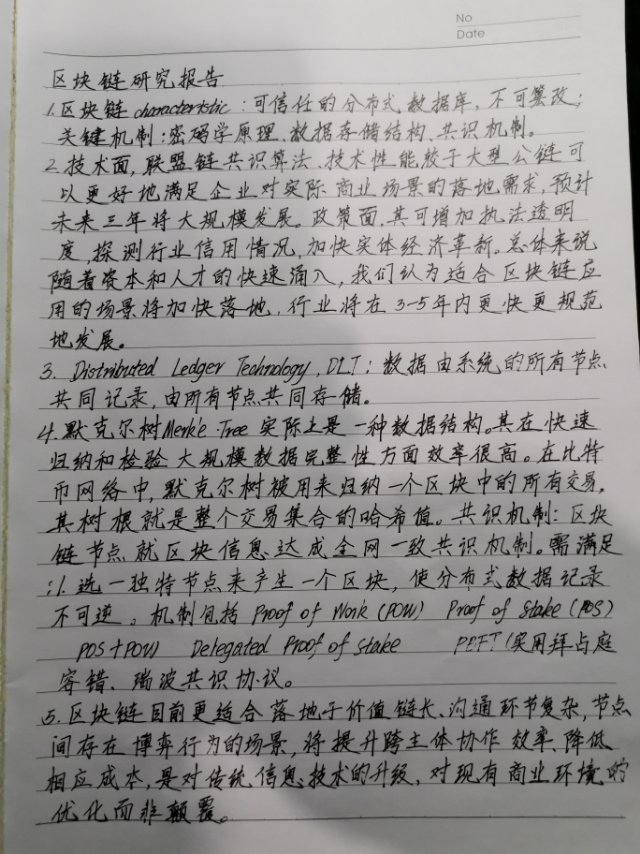 No
Date
区块链研究报告
1.区块链characteristic：可信任的分布式数据库，不可篡改；
关键机制：密码学原理、数据存储结构、共识机制。
2.技术面，联盟链共识算法、技术性能较于大型公链可
以更好地满足企业对实际商业场景的落地需求，预计
未来三年将大规模发展。政策面，其可增加执法透明
度，探测行业信用情况，加快实体经济革新。总体来说
随着资本和人才的快速涌入，我们认为适合区块链应
用的场景将加快落地，行业将在3-5年内更快更规范
地发展。
3. Distributed Ledger Technology，DLT：数据由系统的所有节点
共同记录，由所有节点共同存储。
4.默克尔树Merkle Tree 实际上是一种数据结构。其在快速
归纳和检验大规模数据完整性方面效率很高。在比特
币网络中，默克尔树被用来归纳一个区块中的所有交易，
其树根就是整个交易集合的哈希值。共识机制：区块
链节点就区块信息达成全网一致共识机制。需满足
：1.选一独特节点来产生一个区块，使分布式数据记录
不可逆。机制包括 Proof of Work (POW) Proof of Stake (POS)
POS+POW Delegated Proof of Stake PBFT(实用拜占庭
容错、瑞波共识协议。
5.区块链目前更适合落地于价值链长、沟通环节复杂，节点
间存在博弈行为的场景，将提升跨主体协作效率、降低
相应成本，是对传统信息技术的升级，对现有商业环境的
优化而非颠覆。